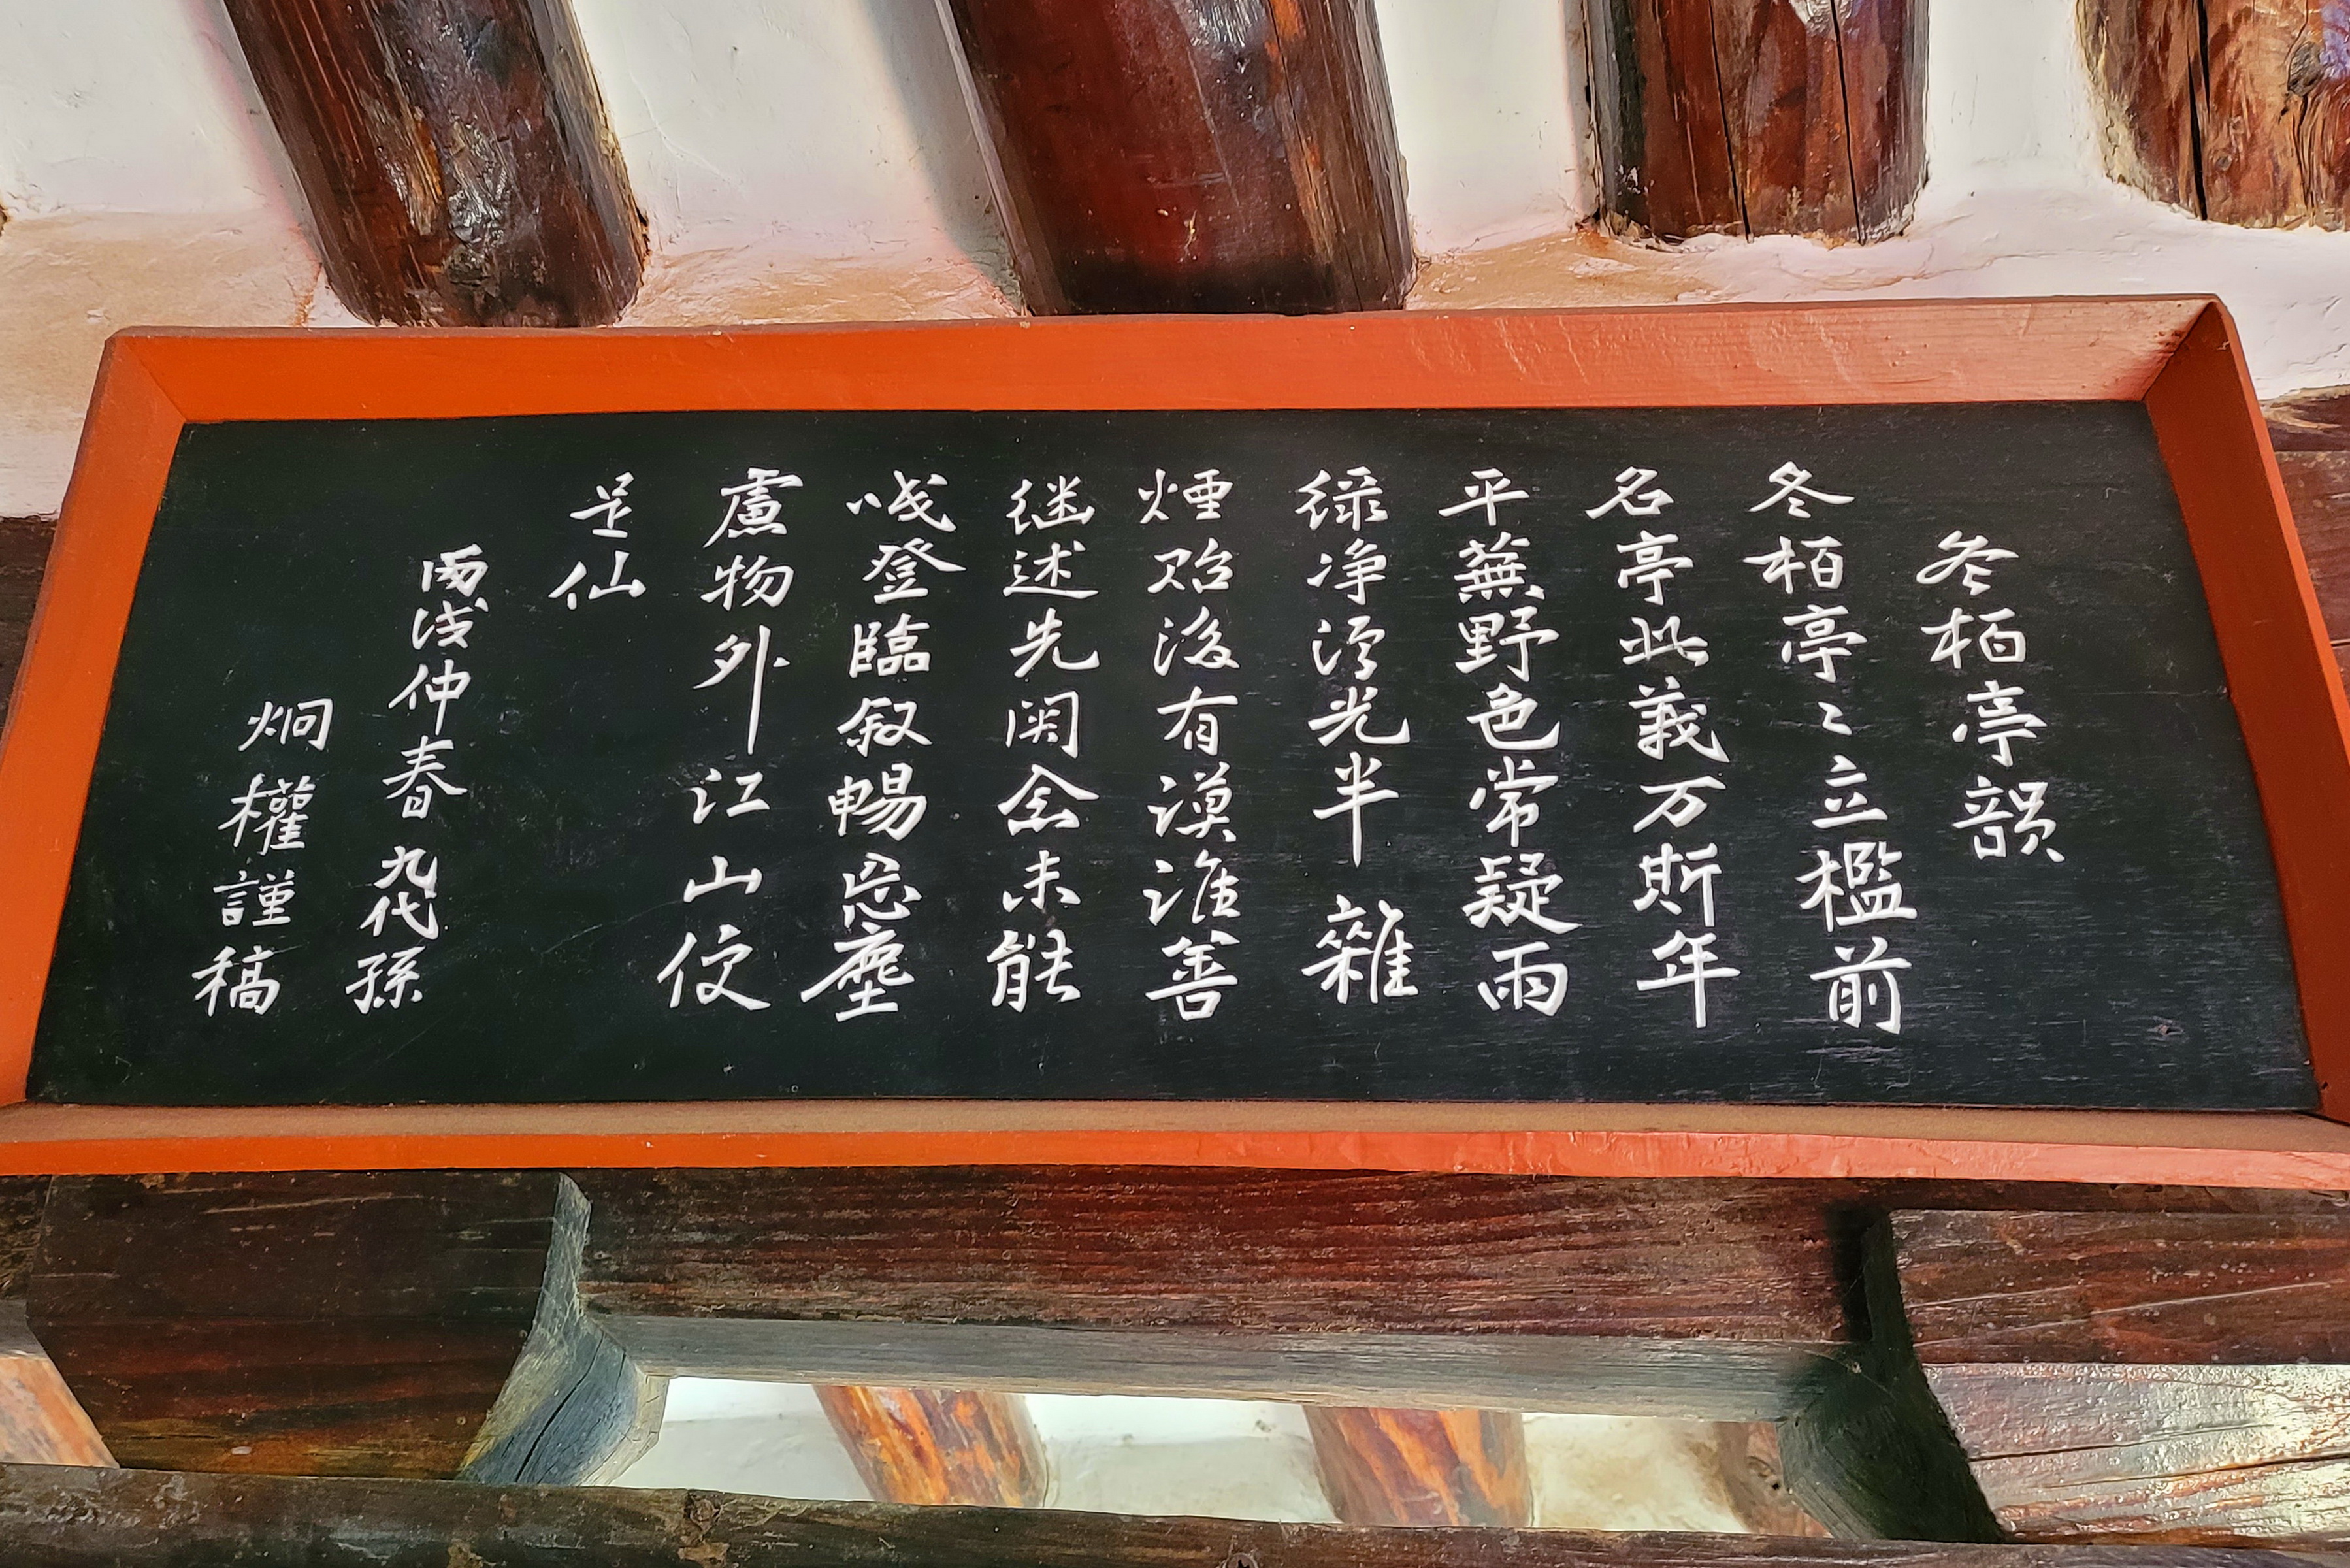 冬栢亭韻
冬栢亭〻立檻前
名亭此義万斯年
平蕪野色常疑雨
綠净浮光半雜
煙貽後有謨誰善
继述先闵余未能
哦登臨叙暢忘塵
慮物外江山仅
是仙
丙戌仲春 九代孫
炯權謹稿